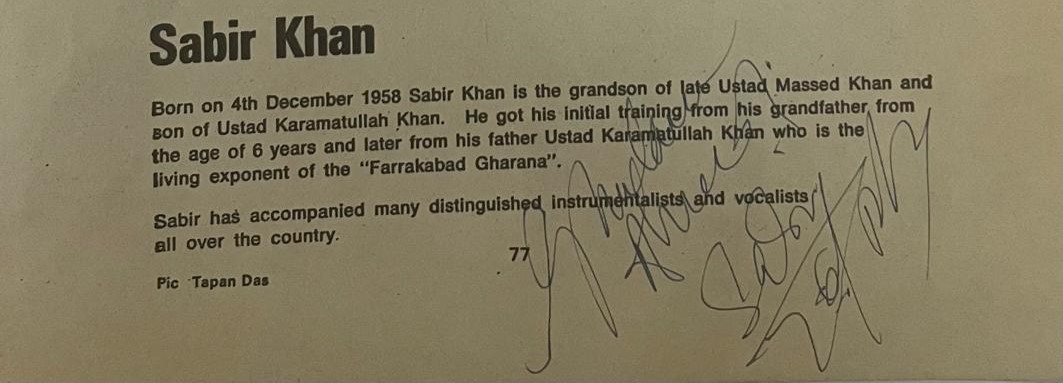 Sabir Khan
Born on 4th December 1958 Sabir Khan is the grandson of late Ustad Massed Khan and
son of Ustad Karamatullah Khan. He got his initial training from his grandfather from
the age of 6 years and later from his father Ustad Karamatullah Khan who is the
living exponent of the "Farrakabad Gharana".
Sabir has accompanied many distinguished instrumentalists and vocalists
all over the country.
77
Pic Tapan Das